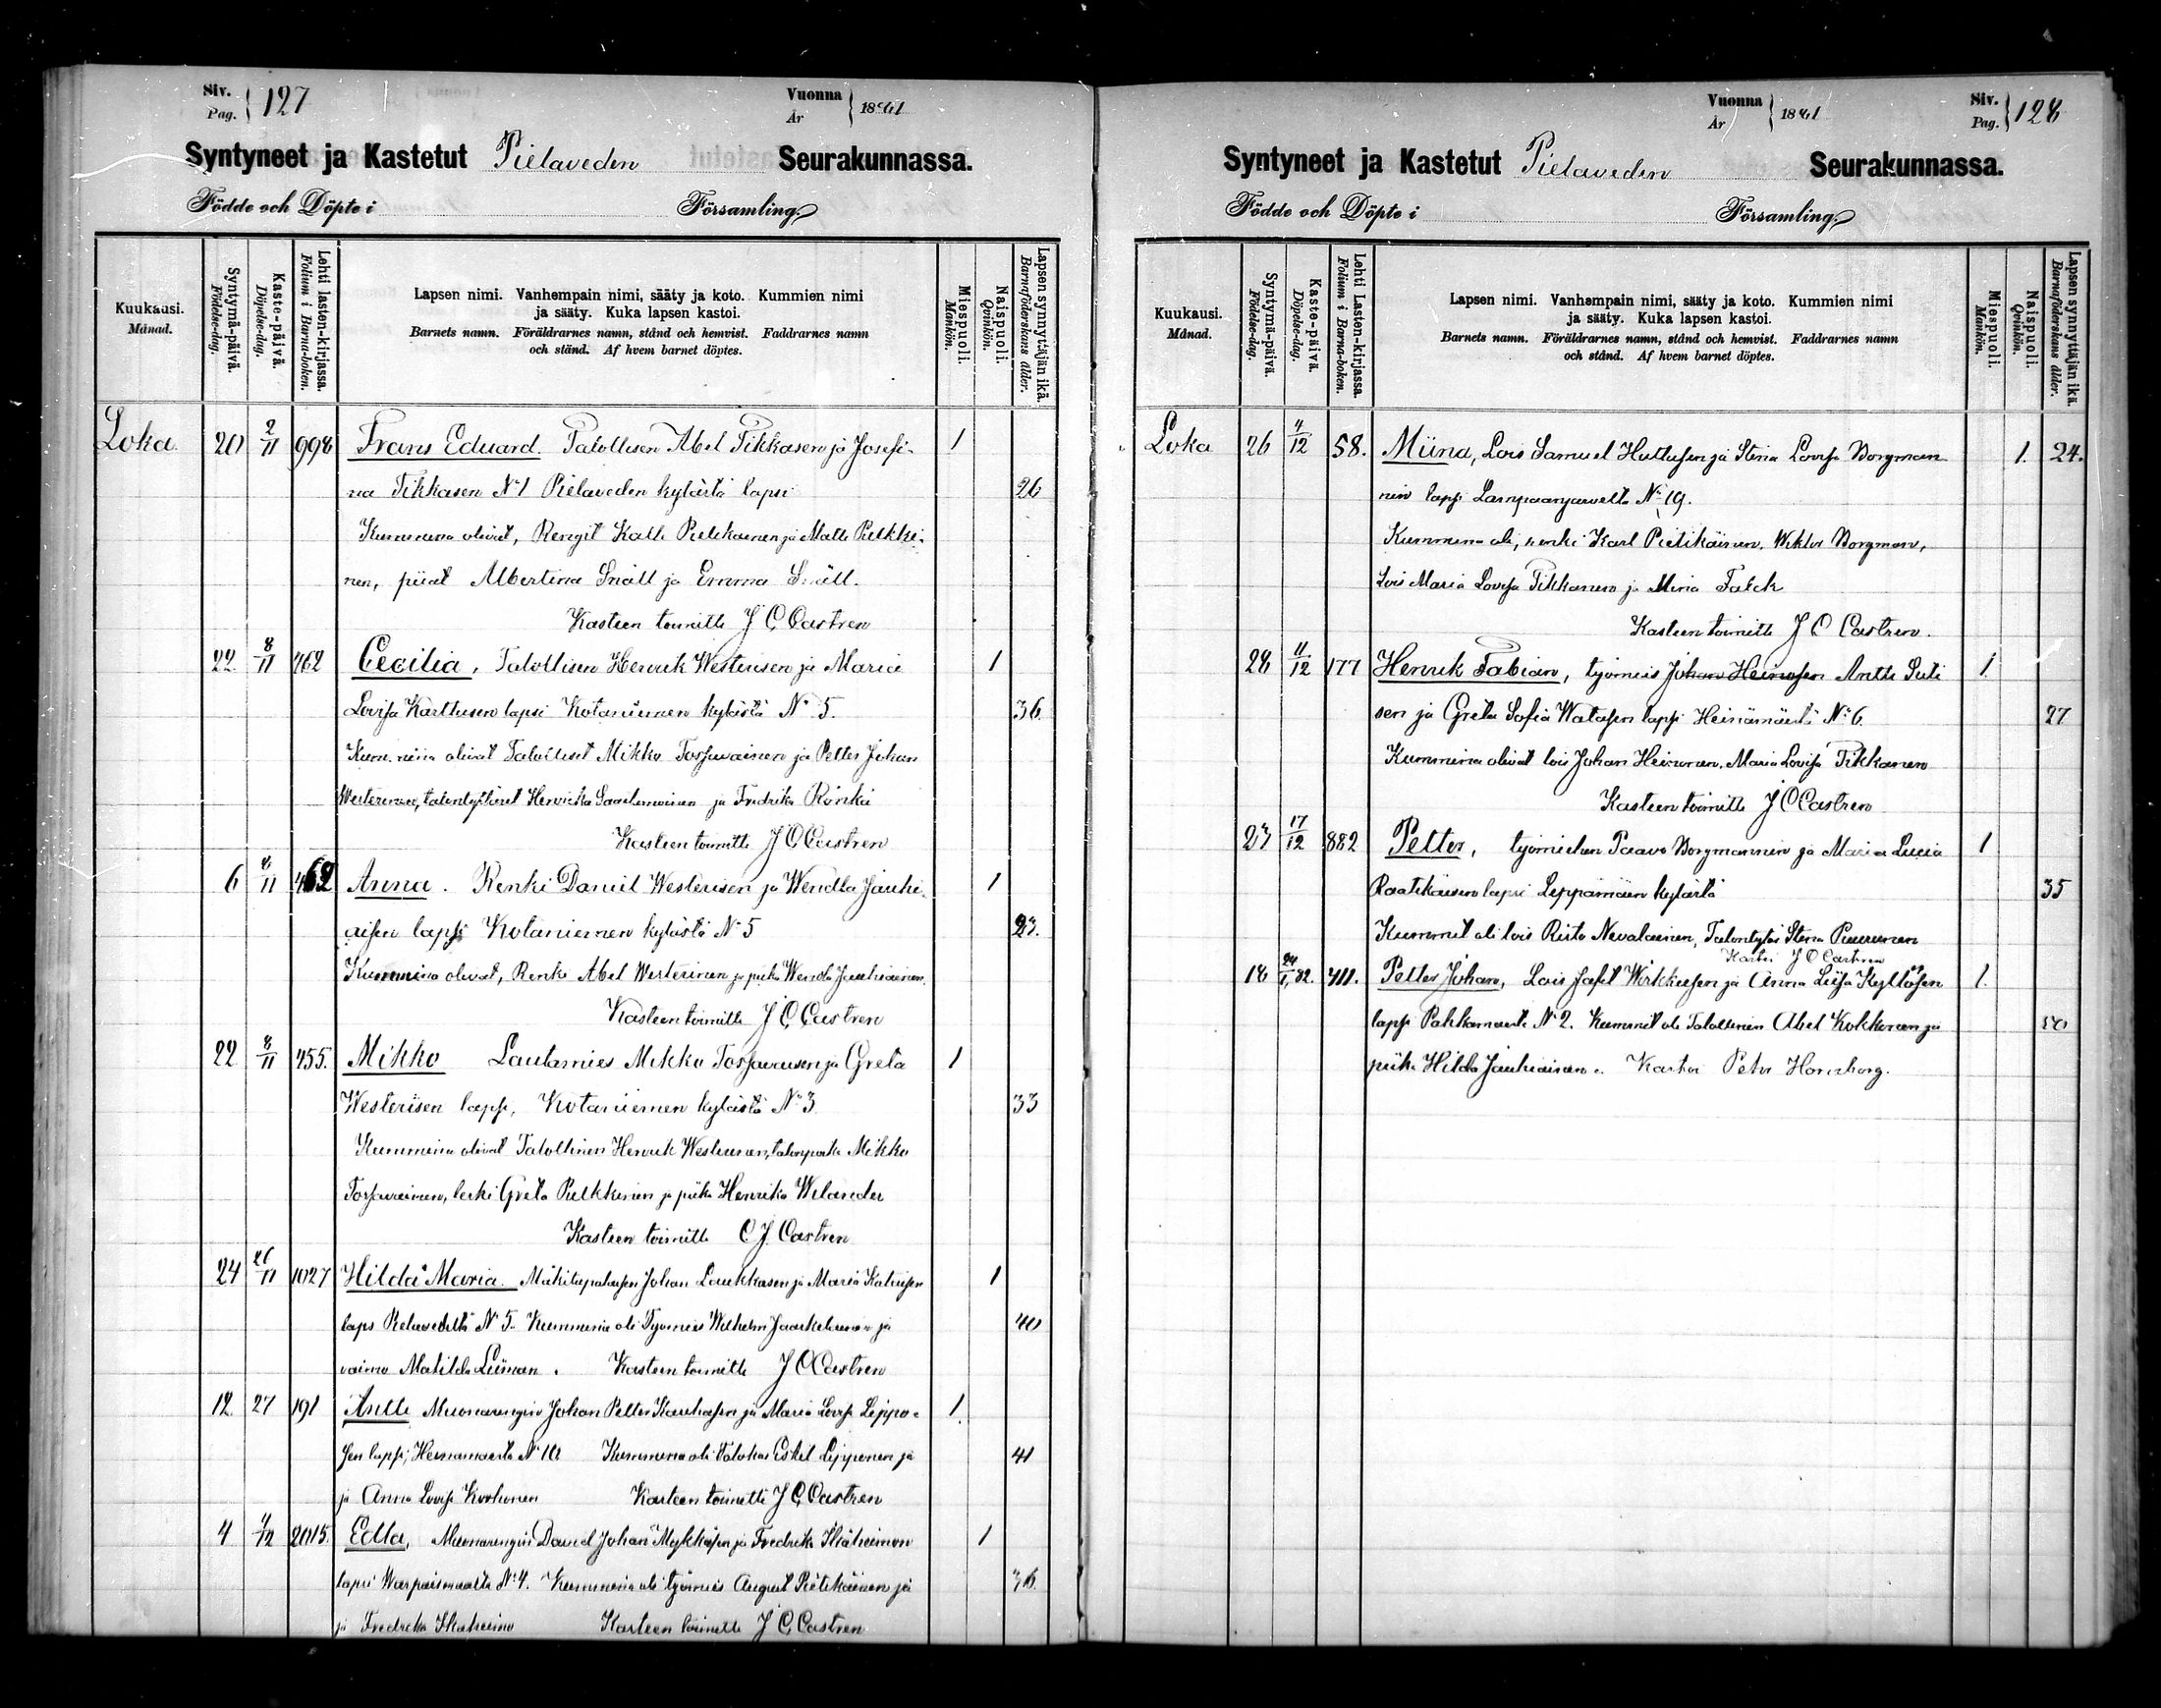 Siv. Pag. 127
Vuonna År 1881
Syntyneet ja Kastetut Pielaveden Seurakunnassa.
Födde och Döpte i Församling.
Kuukausi. Månad.
Syntymä-päivä. Födelse-dag.
Kaste-päivä. Döpelse-dag.
Lehti lasten-kirjassa. Folium i Barna-boken.
Lapsen nimi. Vanhempain nimi, sääty ja koto. Kummien nimi
ja sääty. Kuka lapsen kastoi.
Barnets namn. Föräldrarnes namn, stånd och hemvist. Faddrarnes namn
och stånd. Af hvem barnet döptes.
Miespuoli. Mankön.
Naispuoli. Qvinkön.
Lapsen synnyttäjän ikä. Barnaföderskans ålder.
Loka. 20 2/11 998 Frans Eduard. Talollisen Abel Tikkasen ja Josefi- 1
na Tikkasen No 1 Pielaveden kylästä lapsi 26
Kummina olivat, Rengit Kalle Pulkkinen ja Matti Pulkki-
nen, piiat Albertina Snäll ja Emma Snäll.
Kasteen toimitti J C Castren
22 8/11 462 Cecilia, Talollisen Henrik Westerisen ja Maria 1
Lovisa Karttusen lapsi Kotaniemen kylästä No 5. 36
Kummina olivat Talolliset Mikko Torswainen ja Petter Johan
Westerinen, talontyttäret Henrika ja Fredrika Rönkä
Kasteen toimitti J C Castren
6 8/11 462 Anna. Renki Daniel Westerisen ja Wendla Jauhi- 1
aisen lapsi Kotaniemen kylästä No 5 23.
Kummina olivat, Renki Abel Westerinen ja piika Wendla Jauhiainen.
Kasteen toimitti J C Castren
22 8/11 455. Mikko Lautamies Mikko ja Greta 1
Westerisen lapsi, Kotaniemen kylästä No 3 33
Kummina olivat Talollinen Henrik Westerinen, Mikko
leski Greta Pulkkinen ja piika Henrika Welander
Kasteen toimitti C J Castren
24 26/11 1027 Hilda Maria. Johan Laukkasen ja Maria 1
laps Pielavedeltä No 5. Kummina oli Työmies Wilhelm ja 40
vaimo Matilda Liiman. Kasteen toimitti J C Castren
12 27 191 Antti Muonarengin Johan Petter Kauhasen ja Maria Lovisa Leppo- 1.
sen lapsi, Heinämäestä No 10 Kummina oli Eskel Lipponen ja 41
ja Anna Lovisa Korhonen Kasteen toimitti J C Castren
4 4/12 2015. Edla, Muonarengin David Johan Mykkäsen ja Fredrika Ikäheimon 1
lapsi No 4. Kummina oli työmies August Pietikäinen ja 36
ja Fredrika Ikäheimo Kasteen toimitti J C Castren
Vuonna År 1881
Siv. Pag. 128
Syntyneet ja Kastetut Pielaveden Seurakunnassa.
Födde och Döpte i Församling.
Kuukausi. Månad.
Syntymä-päivä. Födelse-dag.
Kaste-päivä. Döpelse-dag.
Lehti Lasten-kirjassa. Folium i Barna-boken.
Lapsen nimi. Vanhempain nimi, sääty ja koto. Kummien nimi
ja sääty. Kuka lapsen kastoi.
Barnets namn. Föräldrarnes namn, stånd och hemvist. Faddrarnes namn
och stånd. Af hvem barnet döptes.
Miespuoli. Mankön.
Naispuoli. Qvinkön.
Lapsen synnyttäjän ikä. Barnaföderskans ålder.
Loka 26 4/12 58. Miina, Lois Samuel Huttusen ja Stina Lovisa Borgman 1. 24.
nin lapsi No 19.
Kummina oli, renki Karl Pietikäinen, Wiktor Borgman,
Lois Maria Lovisa Tikkanen ja Miina Falck
Kasteen toimitti J C Castren.
28 4/12 177 Henrik Fabian, työmies Johan Heinosen Antti Suti 1
sen ja Greta Sofia Watasen lapsi Heinämäestä No 6 27
Kummina olivat lois Johan Heinonen, Maria Lovisa Tikkanen
Kasteen toimitti J C Castren
23 17/12 882 Petter, työmiehen Paavo Borgmannin ja Maria Lucia 1
Raatikaisen lapsi Leppämäen kylästä 35
Kummit oli lois Risto Nevalainen, Talontytär Stina Puurunen
Kastoi J C Castren
18 24/1,82. 411. Petter Johan, Lois Wirkkusen ja Anna Liisa Kyllösen 1.
lapsi No 2. Kummit oli Talollinen Abel Kokkonen ja
piika Hilda Jauhiainen. Kastoi Peter Hornborg.